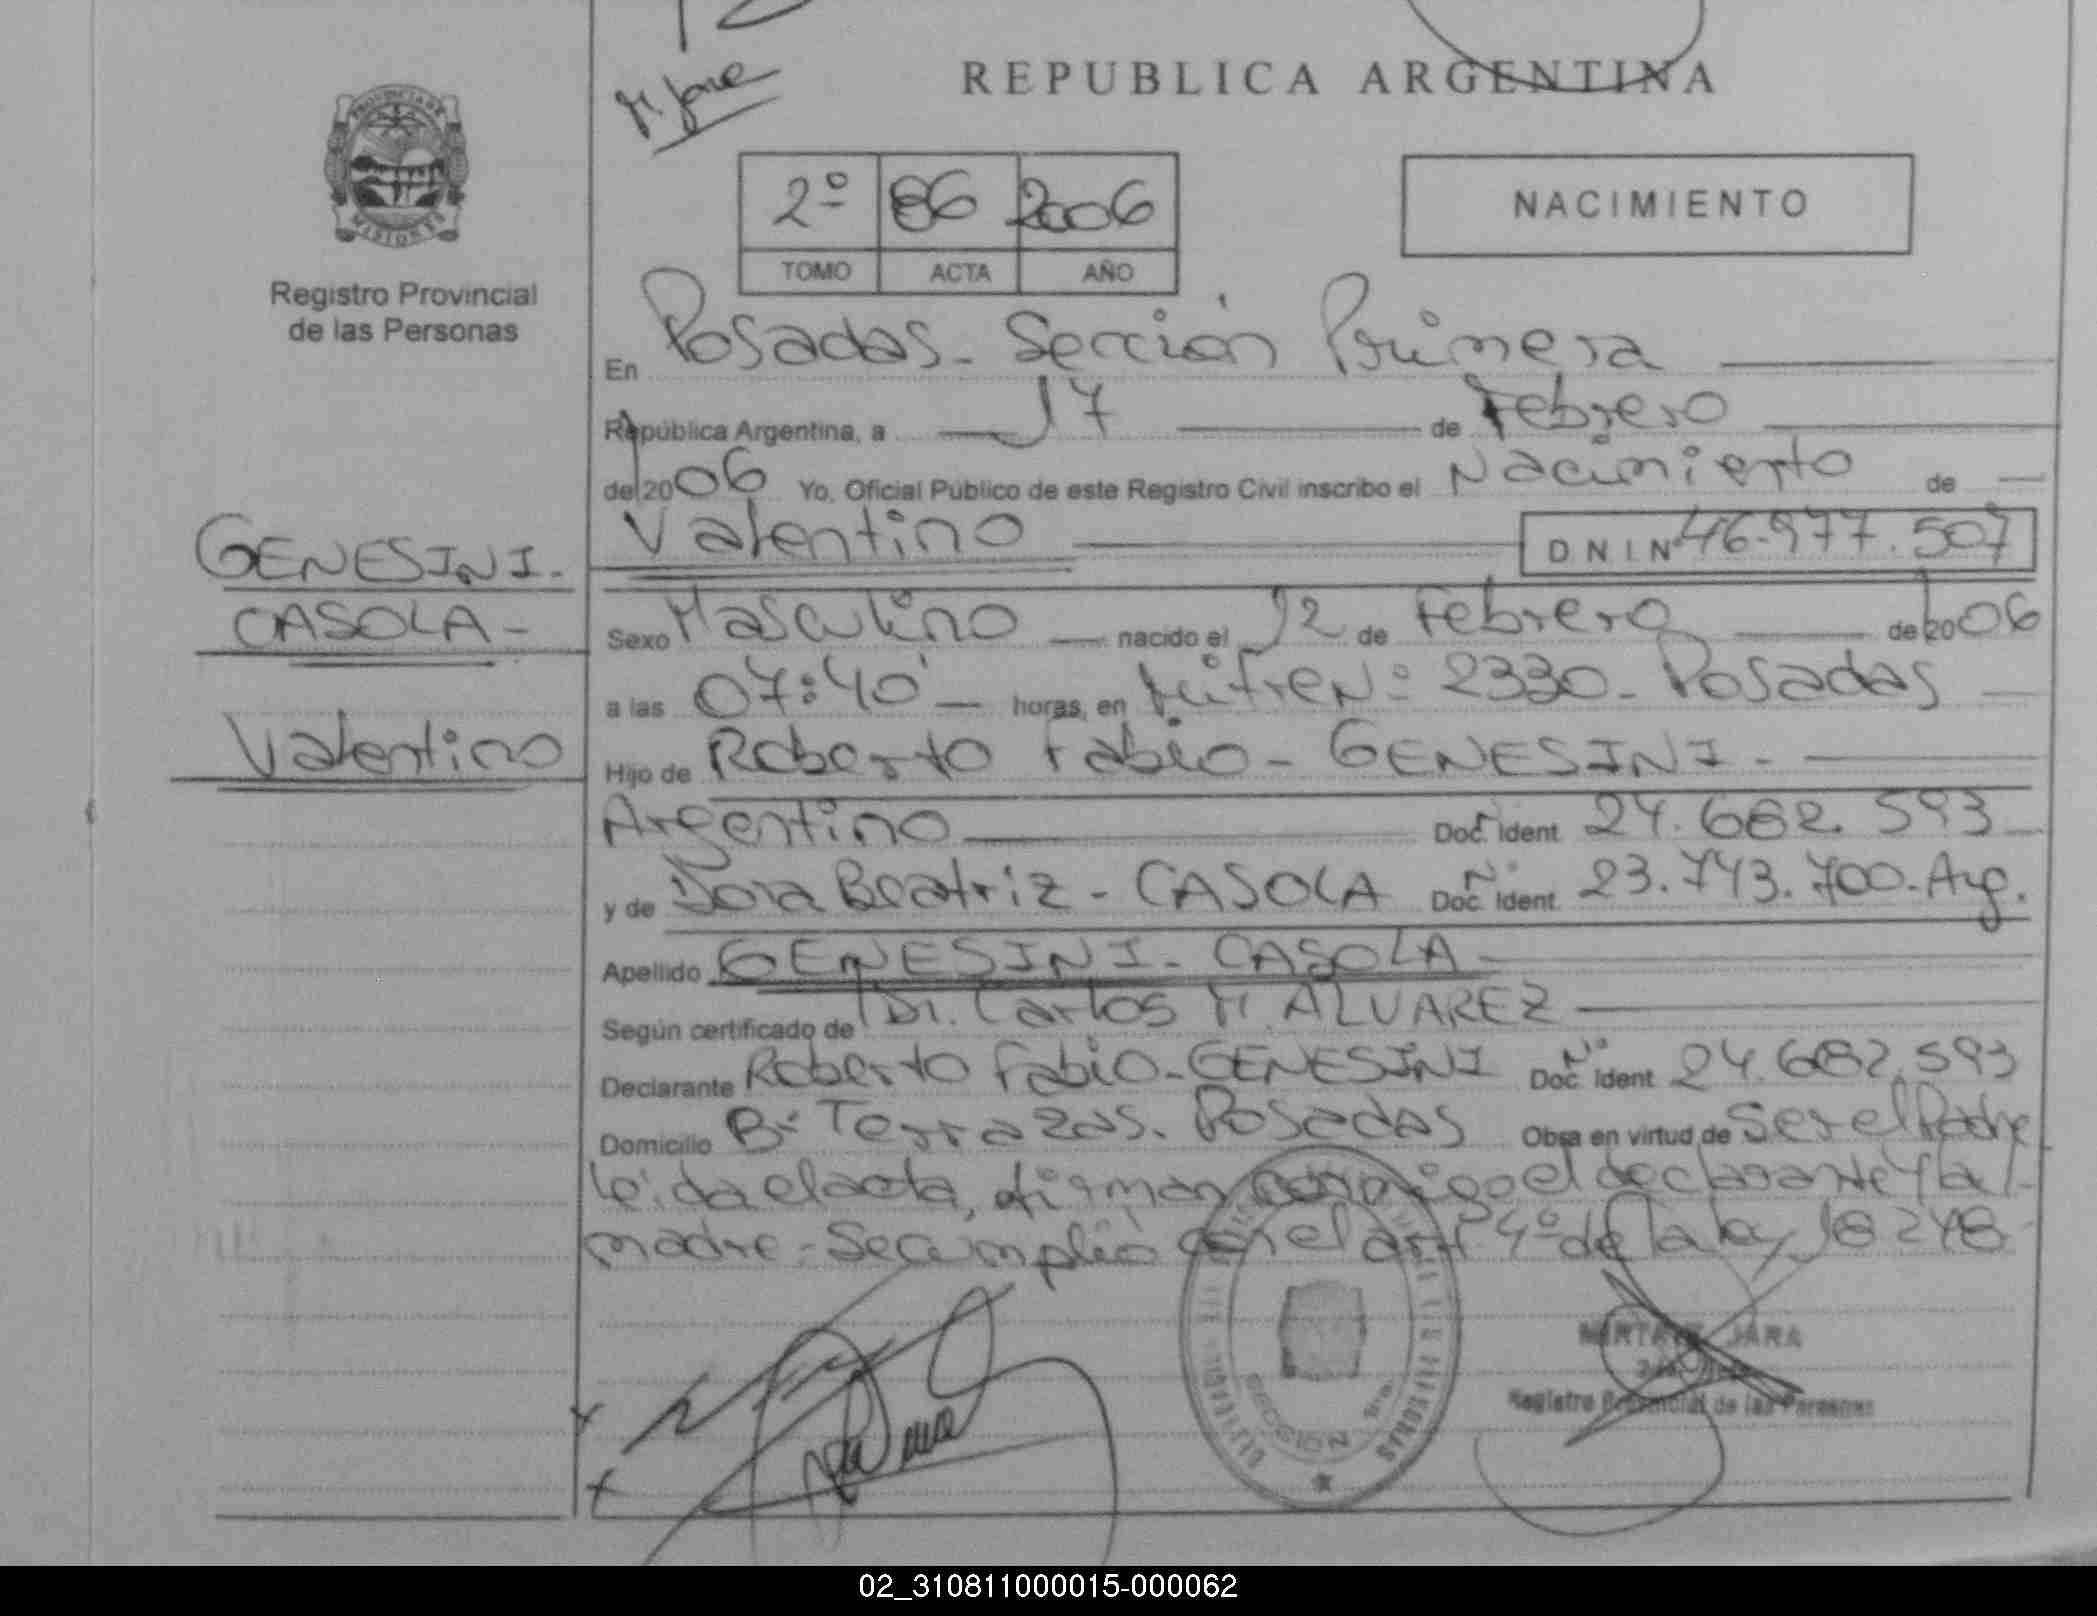 M. Jara
REPUBLICA ARGENTINA
PROVINCIA DE
MISIONES
2º 86 2006
TOMO ACTA AÑO
NACIMIENTO
Registro Provincial
de las Personas
En Posadas - Sección Primera
República Argentina, a 17 de Febrero
del 2006 Yo, Oficial Público de este Registro Civil inscribo el Nacimiento de
Valentino DNI Nº 46.977.507
GENESINI.
CASOLA -
Valentino
Sexo Masculino nacido el 12 de Febrero del 2006
a las 07:40' horas, en Mitre Nº 2330 - Posadas
Hijo de Roberto Fabio - GENESINI -
Argentino Doc. Nº Ident. 24.682.593
y de Dora Beatriz - CASOLA Doc. Nº Ident. 23.743.700 - Arg.
Apellido GENESINI - CASOLA
Según certificado de Dr. Carlos M. ALVAREZ
Declarante Roberto Fabio - GENESINI Doc. Nº Ident. 24.682.593
Domicilio Bº Terrazas. Posadas Obra en virtud de Ser el Padre
Leida el acta, firman conmigo el declarante y la
madre - Se cumplió con el art 4º de la ley 18248
SECCION 1ra
MIRTA JARA
Registro Provincial de las Personas
02_310811000015-000062